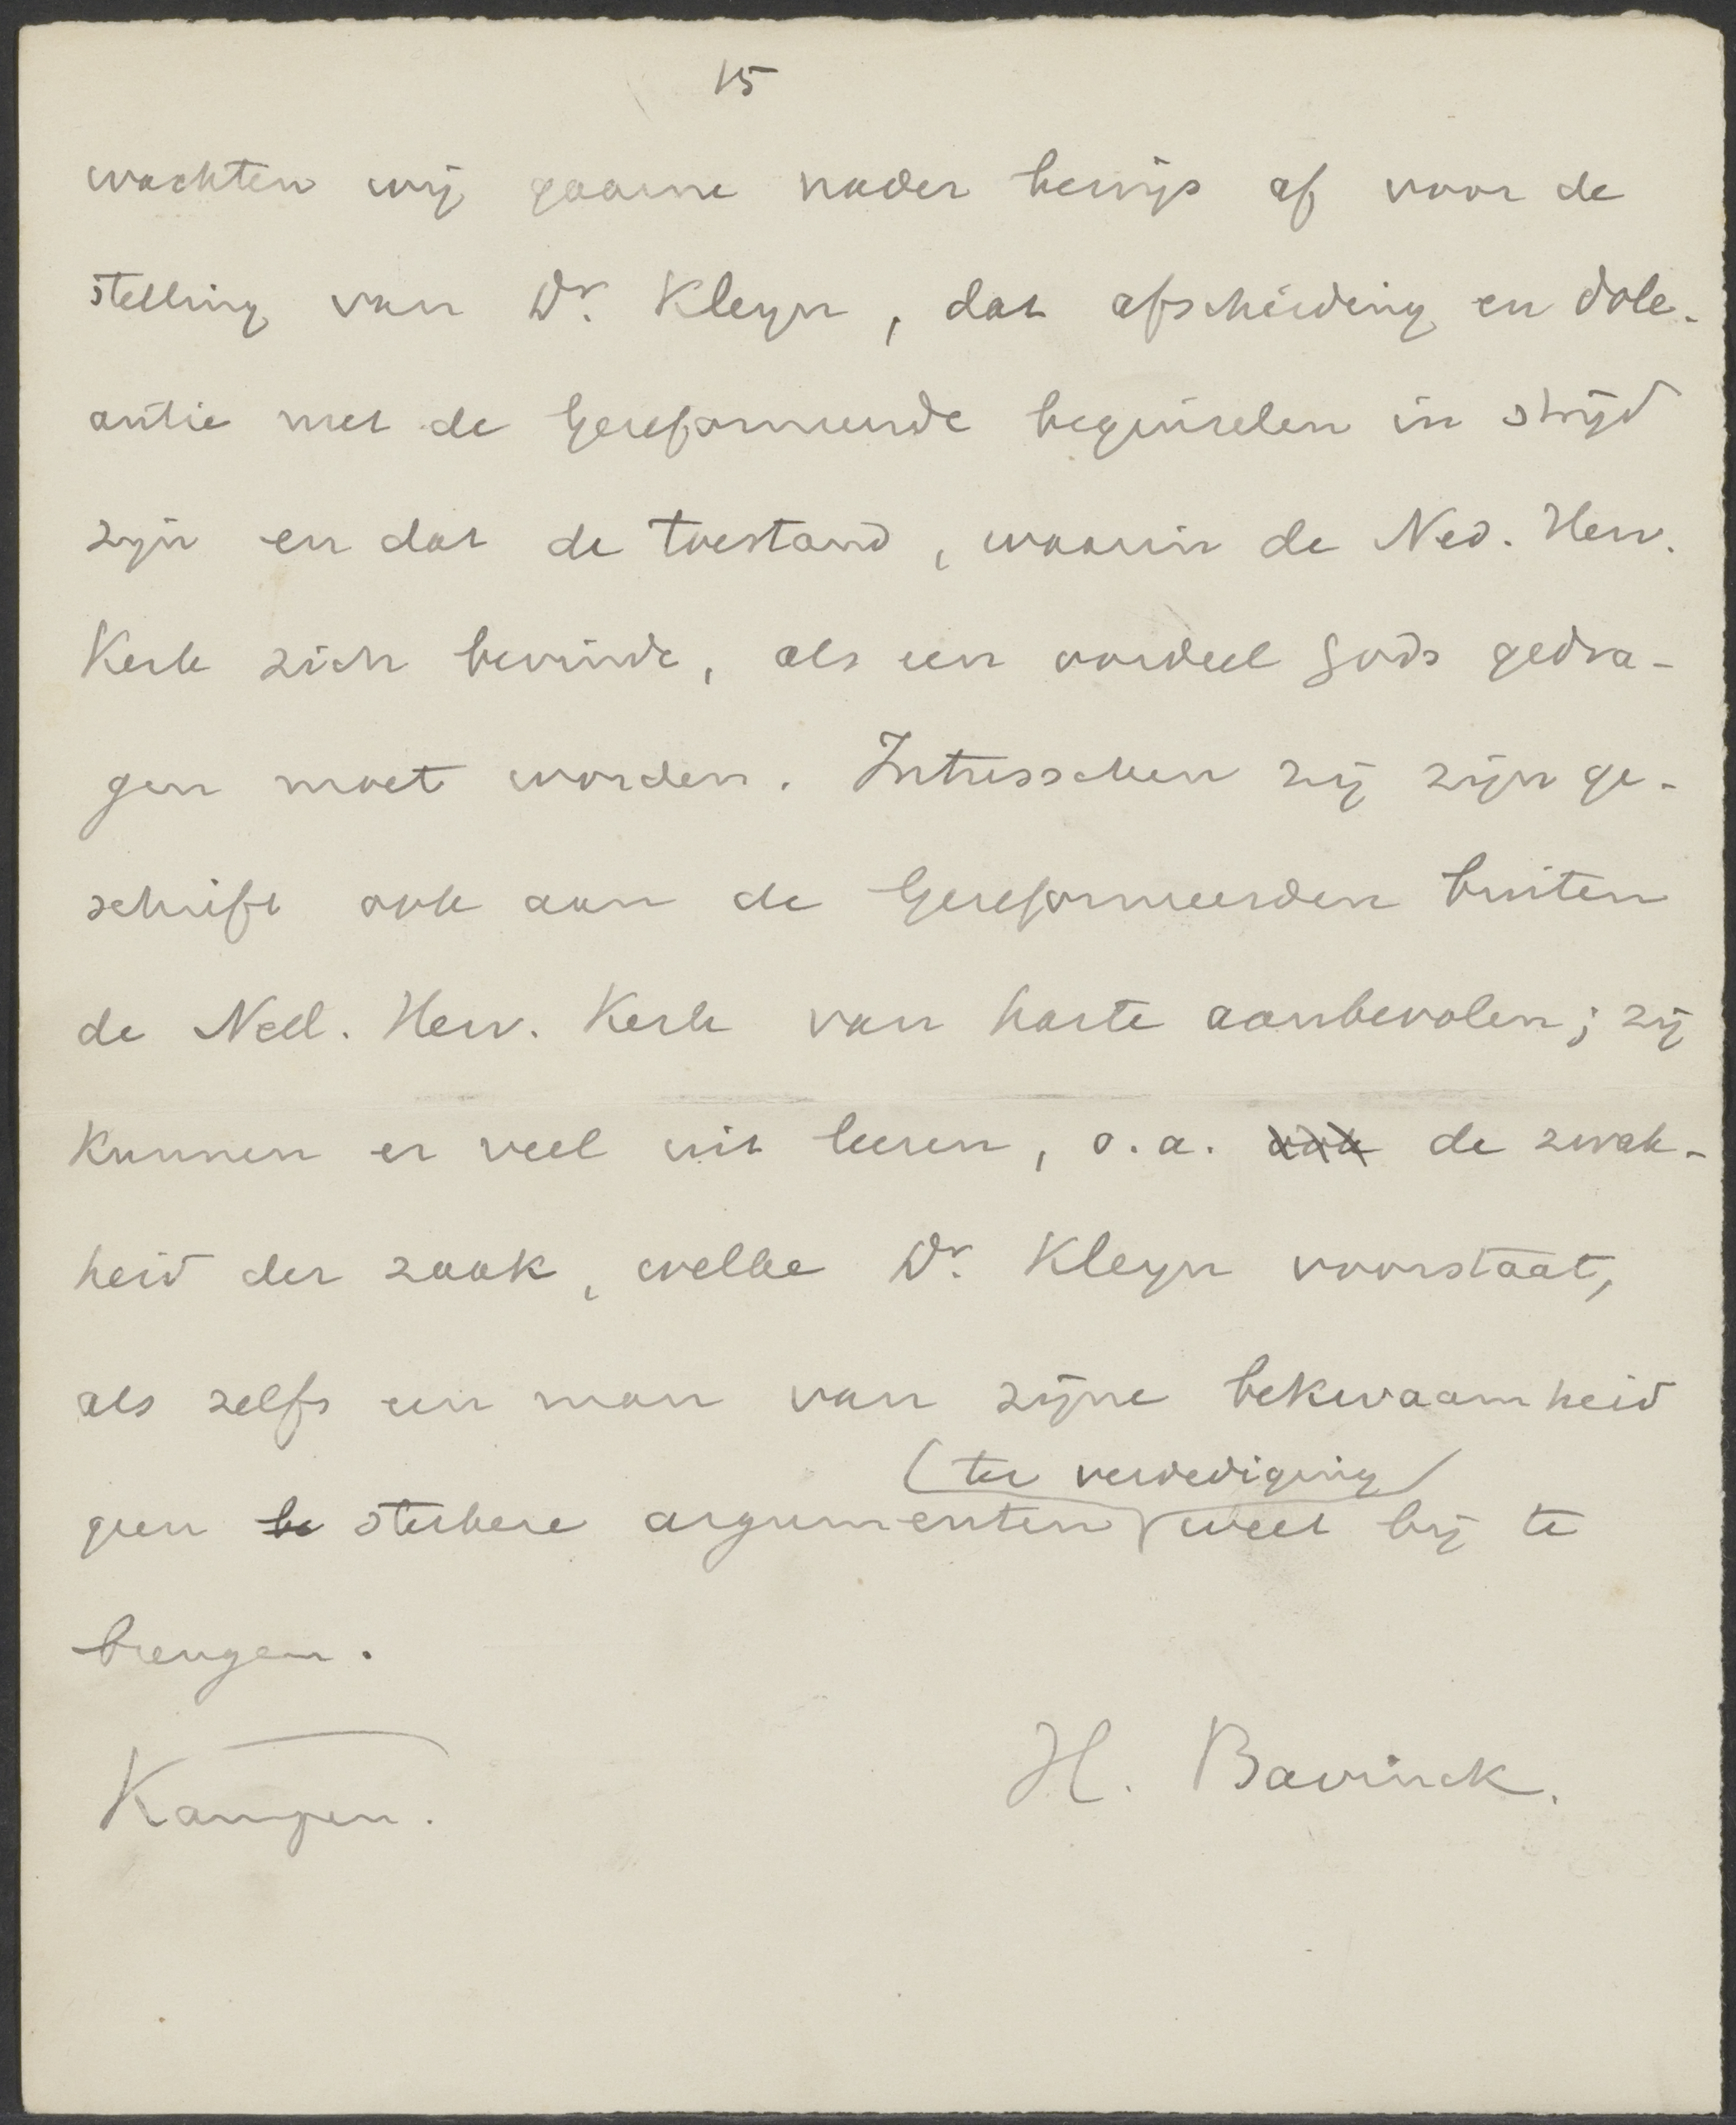 15
wachten wij gaarne nader bewijs af voor de
stelling van Dr. Kleyn, dat afscheiding en dole-
antie met de Gereformeerde beginselen in strijd
zijn en dat de toestand, waarin de Ned. Herv.
Kerk zich bevindt, als een oordeel Gods gedra-
gen moet worden. Intusschen zij zijn ge-
schrift ook aan de Gereformeerden buiten
de Ned. Herv. Kerk van harte aanbevolen; zij
kunnen er veel uit leeren, o.a. ook de zwak-
heid der zaak, welke Dr. Kleyn voorstaat,
als zelfs een man van zijne bekwaamheid
(ter verdediging)
geen be sterkere argumenten weet bij te
brengen.
Kampen. H. Bavinck.